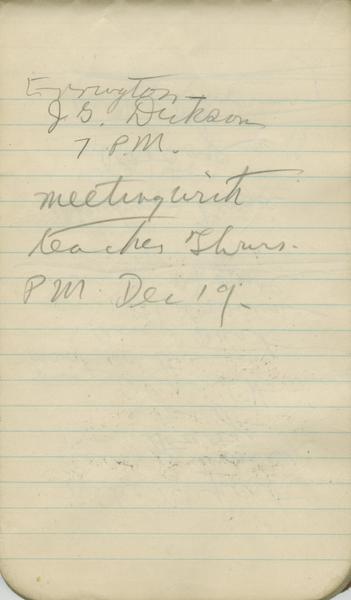 Errington
J G. Dickson
7 P.M.
meeting with
teacher Thurs.
P M Dec 19.